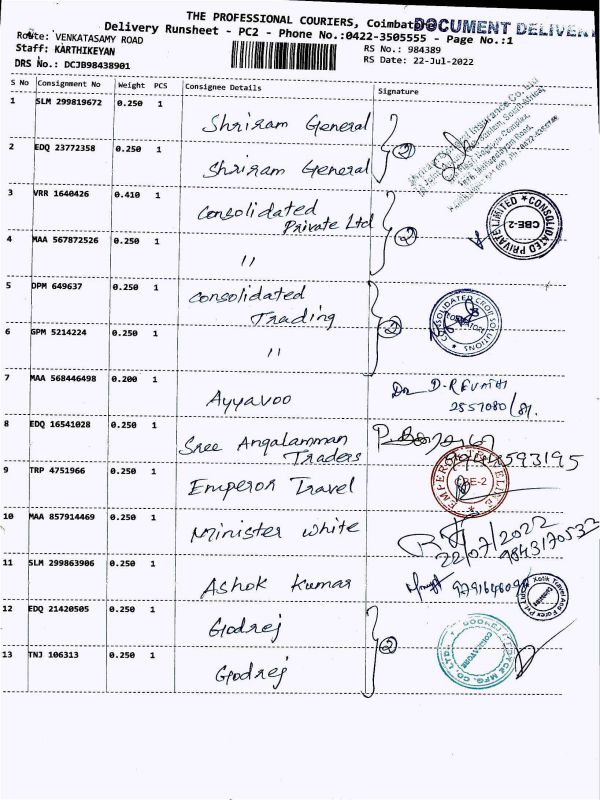 THE PROFESSIONAL COURIERS, Coimbatore
DOCUMENT DELIVERY
Delivery Runsheet - PC2 - Phone No.:0422-3505555 - Page No.:1
Route: VENKATASAMY ROAD
Staff: KARTHIKEYAN
RS No.: 984389
RS Date: 22-Jul-2022
DRS No.: DCJB98438901
S No Consignment No Weight PCS Consignee Details Signature
1 SLM 299819672 0.250 1 Shriram General
2 EDQ 23772358 0.250 1 Shriram General 2
3 VRR 1640426 0.410 1 Consolidated
Private Ltd 2
CONSOLIDATED PRIVATE LIMITED
CBE-2
4 MAA 567872526 0.250 1 "
5 DPM 649637 0.250 1 Consolidated
Trading 2
CONSOLIDATED CROP SOLUTIONS
6 GPM 5214224 0.250 1 "
7 MAA 568446498 0.200 1 Ayyavoo
D. REVATHI
2557080/81.
8 EDQ 16541028 0.250 1 Sree Angalamman
Traders
593195
9 TRP 4751966 0.250 1 Emperor Travel
EMPEROR TRAVELINE
CBE-2
10 MAA 857914469 0.250 1 Minister white
22/07/2022
9843170532
11 SLM 299863906 0.250 1 Ashok Kumar
12 EDQ 21420505 0.250 1 Godrej
13 TNJ 106313 0.250 1 Godrej 2
GODREJ & BOYCE MFG. CO. LTD.
COIMBATORE